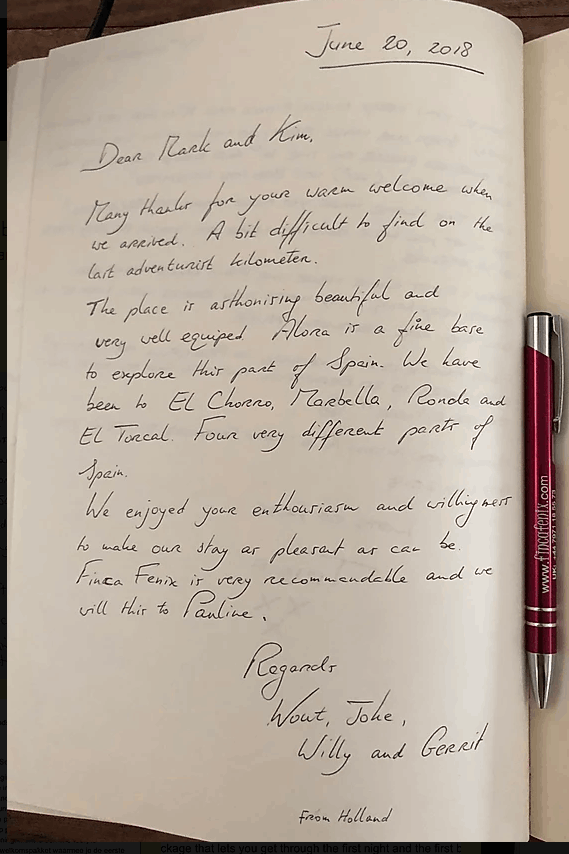 June 20, 2018
Dear Mark and Kim,
Many thanks for your warm welcome when
we arrived. A bit difficult to find on the
last adventurist kilometer.
The place is asthonising beautiful and
very well equiped Alora is a fine base
to explore this part of Spain. We have
been to El Chorro, Marbella, Ronda and
El Torcal. Four very different parts of
Spain.
We enjoyed your enthousiasm and willingness
to make our stay as pleasant as can be.
Finca Fenix is very recommandable and we
will this to Pauline.
Regards
Wout, Joke,
Willy and Gerrit
From Holland
www.fincafenix.com
ckage that lets you get through the first night and the first b